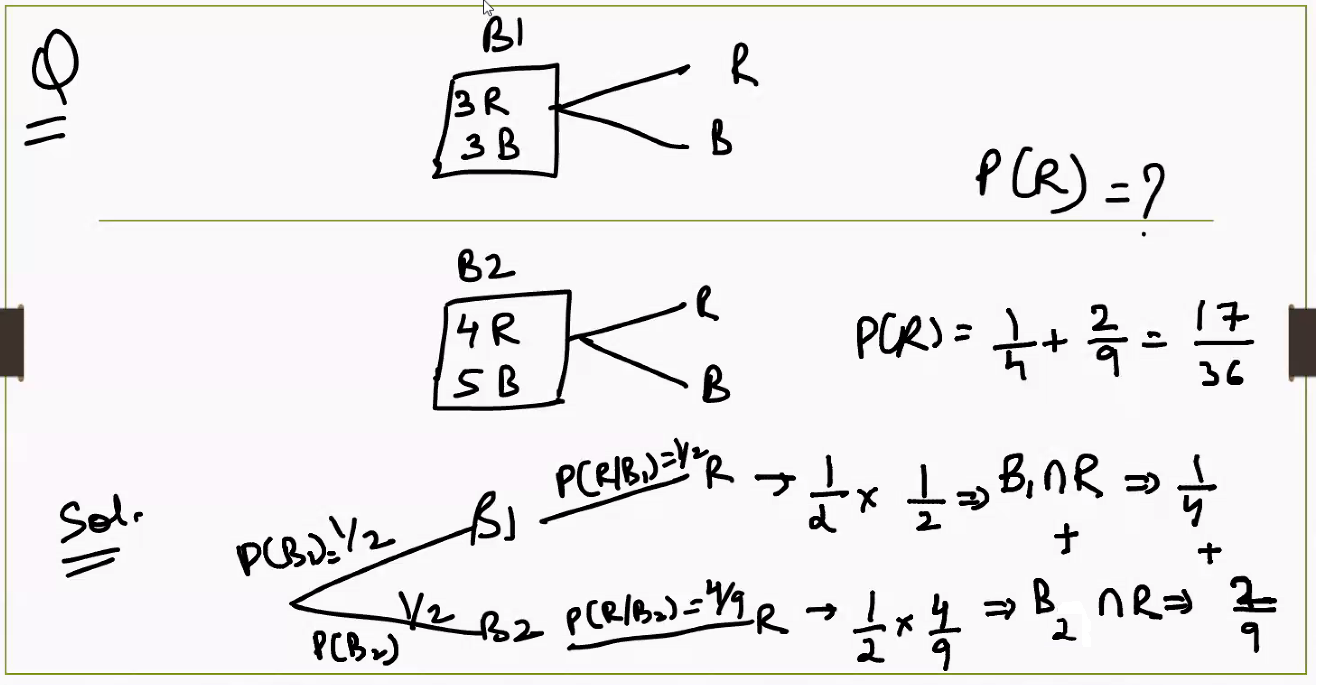 Q
B1
3R
3B
R
B
P(R) = ?
B2
4R
5B
R
B
P(R) = 1/4 + 2/9 = 17/36
Sol.
P(B1) = 1/2 B1 P(R/B1) = 1/2 R → 1/2 × 1/2 ⇒ B1 ∩ R ⇒ 1/4
+ +
1/2 P(B2) B2 P(R/B2) = 4/9 R → 1/2 × 4/9 ⇒ B2 ∩ R ⇒ 2/9